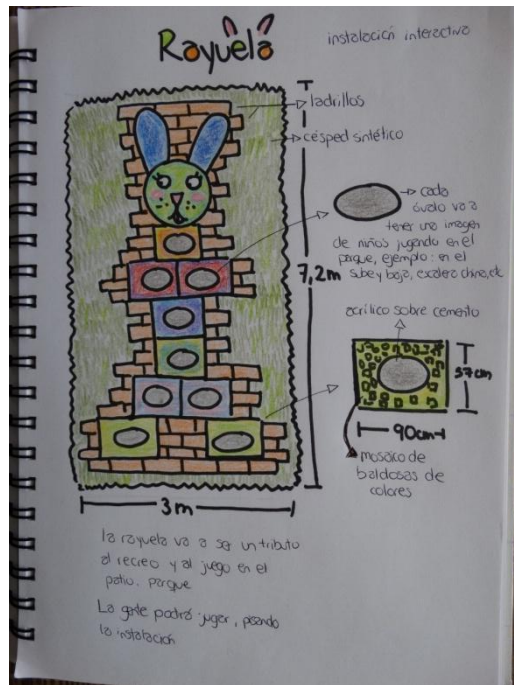 Rayuela
instalación interactiva
ladrillos
césped sintético
cada
óvalo va a
tener una imagen
de niños jugando en el
parque, ejemplo: en el
sube y baja, escalera china, etc
7,2m
acrílico sobre cemento
57cm
90cm
mosaico de
baldosas de
colores
3m
la rayuela va a ser un tributo
al recreo y al juego en el
patio. parque
La gente podrá jugar, pisando
la instalación